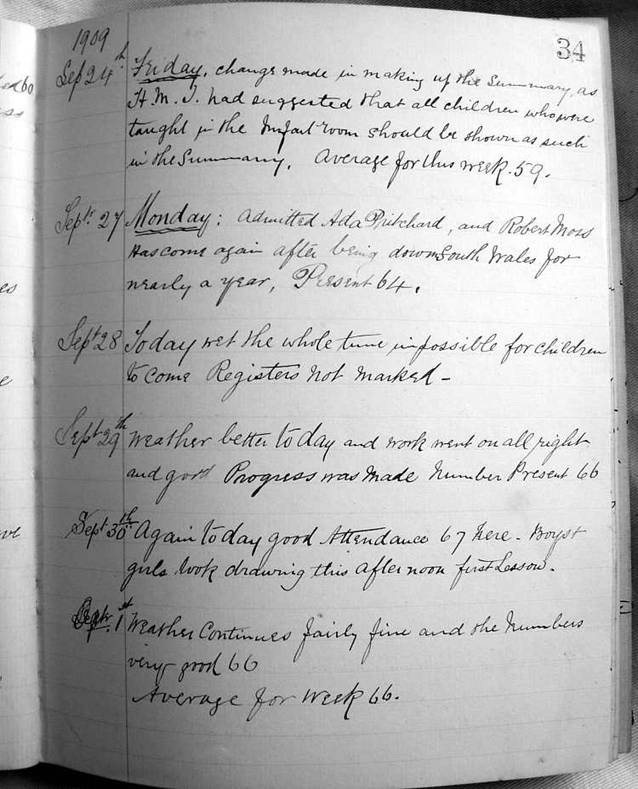 34
1909
Sep 24th Friday. change made in making up the Summary, as
H.M.I. had suggested that all children who were
taught in the Infant room should be shown as such
in the Summary. Average for this week. 59.
Sept. 27 Monday: Admitted Ada Pritchard, and Robert Moss
Has come again after being down South Wales for
nearly a year, Present 64.
Sept 28 Today wet the whole time impossible for children
to come Registers not marked -
Sept 29th Weather better to day and work went on all right
and good Progress was made Number Present 66
Sept. 30th Again to day good Attendance 67 here. Boys &
girls took drawing this afternoon first Lesson.
1st Weather Continues fairly fine and the Numbers
very good 66
Average for Week 66.